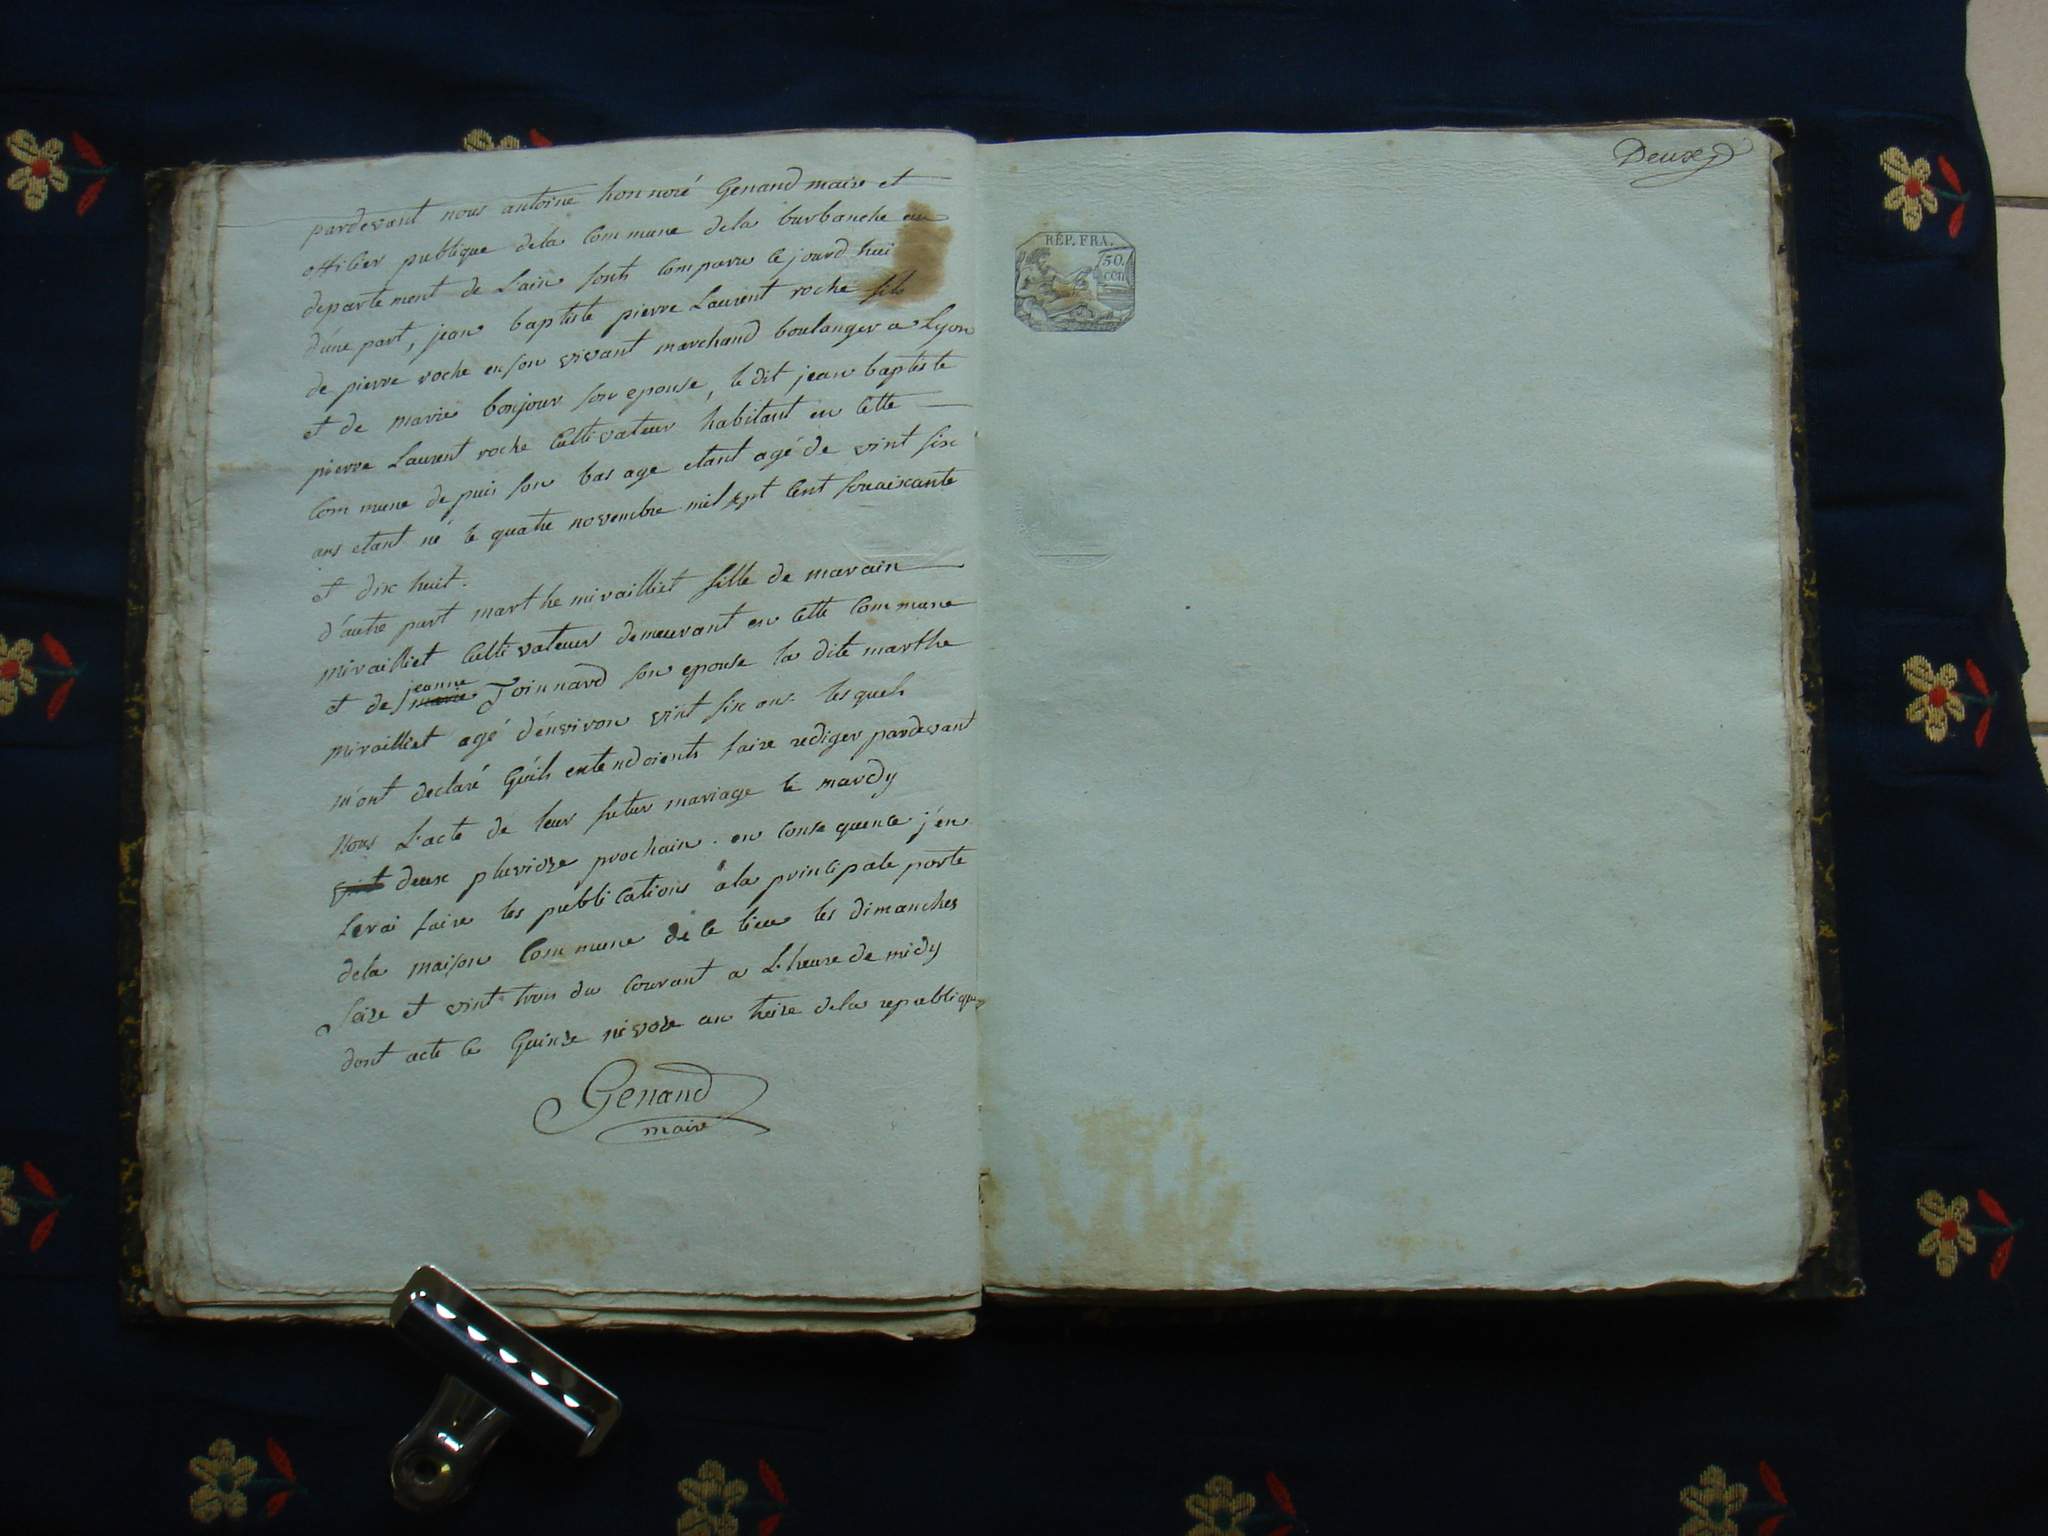 pardevant nous antoine honnoré Genand maire et
officier publique dela Commune dela burbanche au
departement de Lain sonts comparu ce jourd'hui
d'une part, jean baptiste pierre Laurent roche fils
de pierre roche en son vivant marchand boulanger a Lyon
et de marie bonjour son epouse, le dit jean baptiste
pierre Laurent roche Cultivateur habitant en Cette
Commune depuis son bas age etant agé de vint six
ans etant né le quatre novembre mil sept Cent souaixante
et dix huit.
d'autre part marthe miraillet fille de marain
miraillet Cultivateur demeurant en Cette Commune
et de jeanne marie Joinnard son epouse la dite marthe
miraillet agé d'environ vint six ans. lesquels
m'ont declaré Quils entendoients faire rediger pardevant
Nous L'acte de leur futur mariage le mardy
vint deux pluviôse prochain. en Consequence j'en
ferai faire les publications a la principale porte
dela maison Commune de Ce lieu les dimanches
seize et vint trois du Courant a L'heure de midy
dont acte Ce Quinze nivose an treize dela republique
Genand
maire
Deux
REP. FRA.
50.
cen